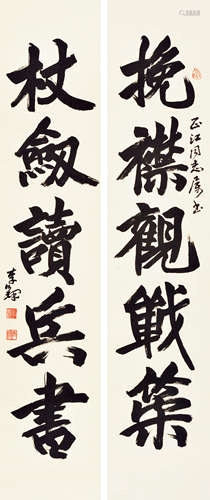 挽襟觀戰策
正江同志屬書
杖劍讀兵書
李鐸